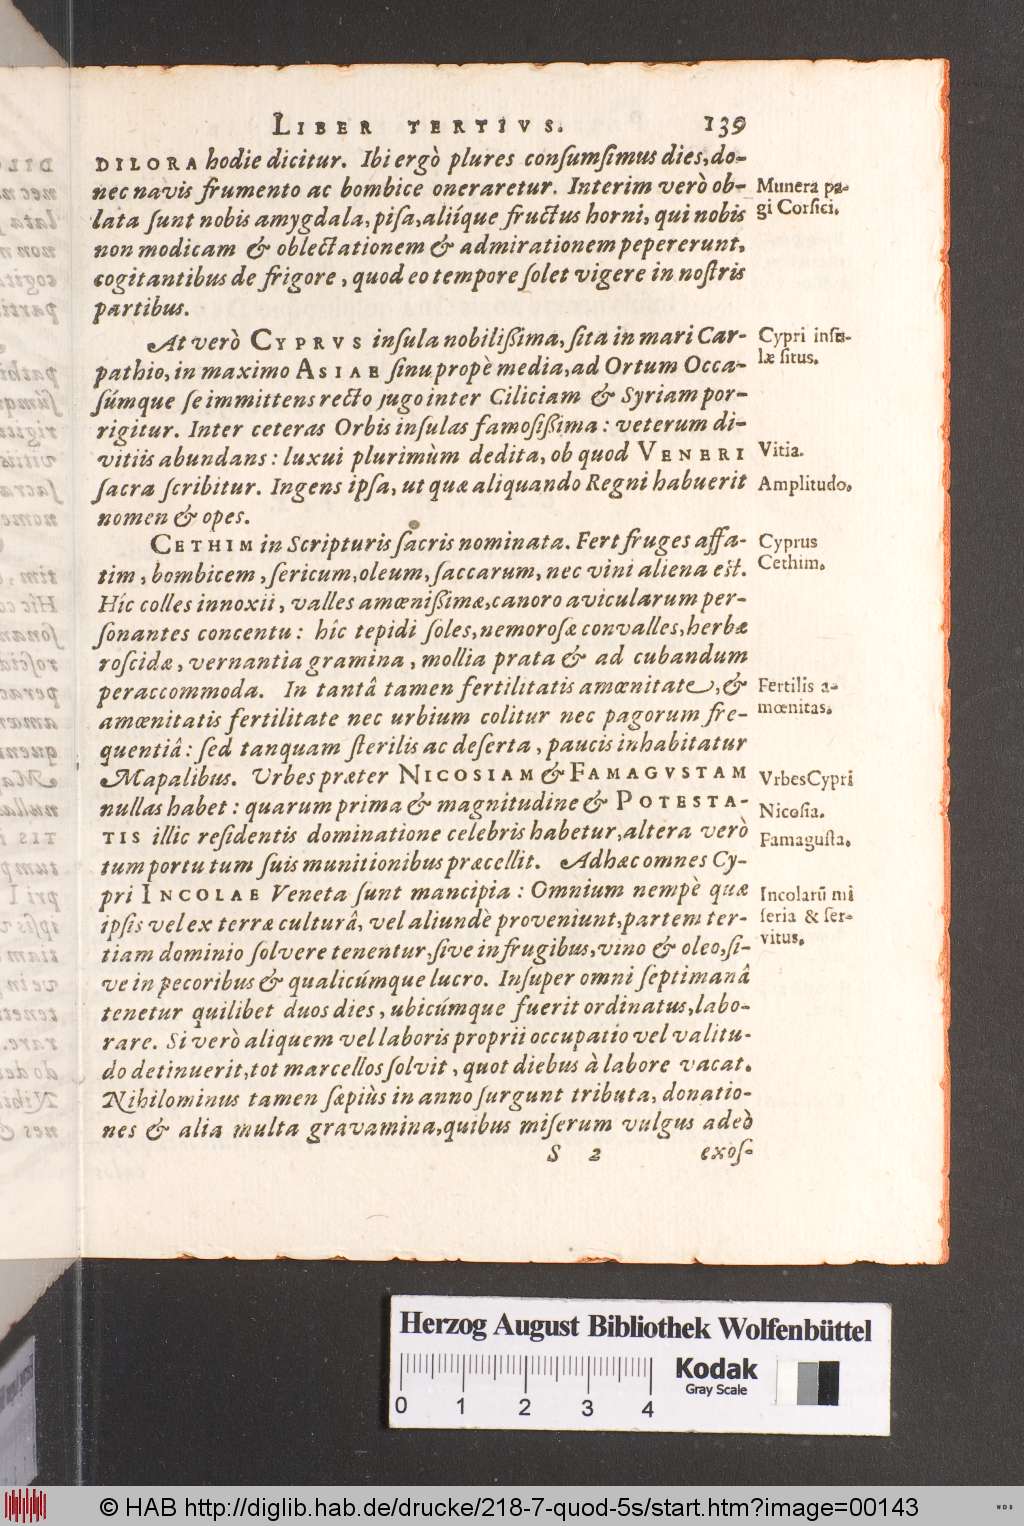 LIBER TERTIVS. 139
DILORA hodie dicitur. Ibi ergò plures conſumſimus dies, do-
nec navis frumento ac bombice oneraretur. Interim verò ob-
lata ſunt nobis amygdala, piſa, aliíque fructus horni, qui nobis
non modicam & oblectationem & admirationem pepererunt,
cogitantibus de frigore, quod eo tempore ſolet vigere in noſtris
partibus.
Munera pa-
gi Corſici.
At verò CYPRVS inſula nobilißima, ſita in mari Car-
pathio, in maximo ASIAE ſinu propè media, ad Ortum Occa-
ſúmque ſe immittens recto jugo inter Ciliciam & Syriam por-
rigitur. Inter ceteras Orbis inſulas famoſißima: veterum di-
vitiis abundans: luxui plurimùm dedita, ob quod VENERI
ſacra ſcribitur. Ingens ipſa, ut quæ aliquando Regni habuerit
nomen & opes.
Cypri inſu-
læ ſitus.
Vitia.
Amplitudo.
CETHIM in Scripturis ſacris nominata. Fert fruges affa-
tim, bombicem, ſericum, oleum, ſaccarum, nec vini aliena eſt.
Híc colles innoxii, valles amœnißimæ, canoro avicularum per-
ſonantes concentu: hîc tepidi ſoles, nemoroſæ convalles, herbæ
roſcidæ, vernantia gramina, mollia prata & ad cubandum
peraccommoda. In tantâ tamen fertilitatis amœnitate, &
amœnitatis fertilitate nec urbium colitur nec pagorum fre-
quentiâ: ſed tanquam ſterilis ac deſerta, paucis inhabitatur
Mapalibus. Urbes præter NICOSIAM & FAMAGVSTAM
nullas habet: quarum prima & magnitudine & POTESTA-
TIS illic reſidentis dominatione celebris habetur, altera verò
tum portu tum ſuis munitionibus præcellit. Adhæc omnes Cy-
pri INCOLAE Veneta ſunt mancipia: Omnium nempè quæ
ipſis vel ex terræ culturâ, vel aliundè proveniunt, partem ter-
tiam dominio ſolvere tenentur, ſive in frugibus, vino & oleo, ſi-
ve in pecoribus & qualicúmque lucro. Inſuper omni ſeptimanâ
tenetur quilibet duos dies, ubicúmque fuerit ordinatus, labo-
rare. Si verò aliquem vel laboris proprii occupatio vel valitu-
do detinuerit, tot marcellos ſolvit, quot diebus à labore vacat.
Nihilominus tamen ſæpiùs in anno ſurgunt tributa, donatio-
nes & alia multa gravamina, quibus miſerum vulgus adeò
Cyprus
Cethim.
Fertilis a-
mœnitas.
VrbesCypri
Nicoſia.
Famaguſta.
Incolarũ mi
ſeria & ſer-
vitus.
S 2 exoſ-
Herzog August Bibliothek Wolfenbüttel
0 1 2 3 4
Kodak
Gray Scale
© HAB http://diglib.hab.de/drucke/218-7-quod-5s/start.htm?image=00143